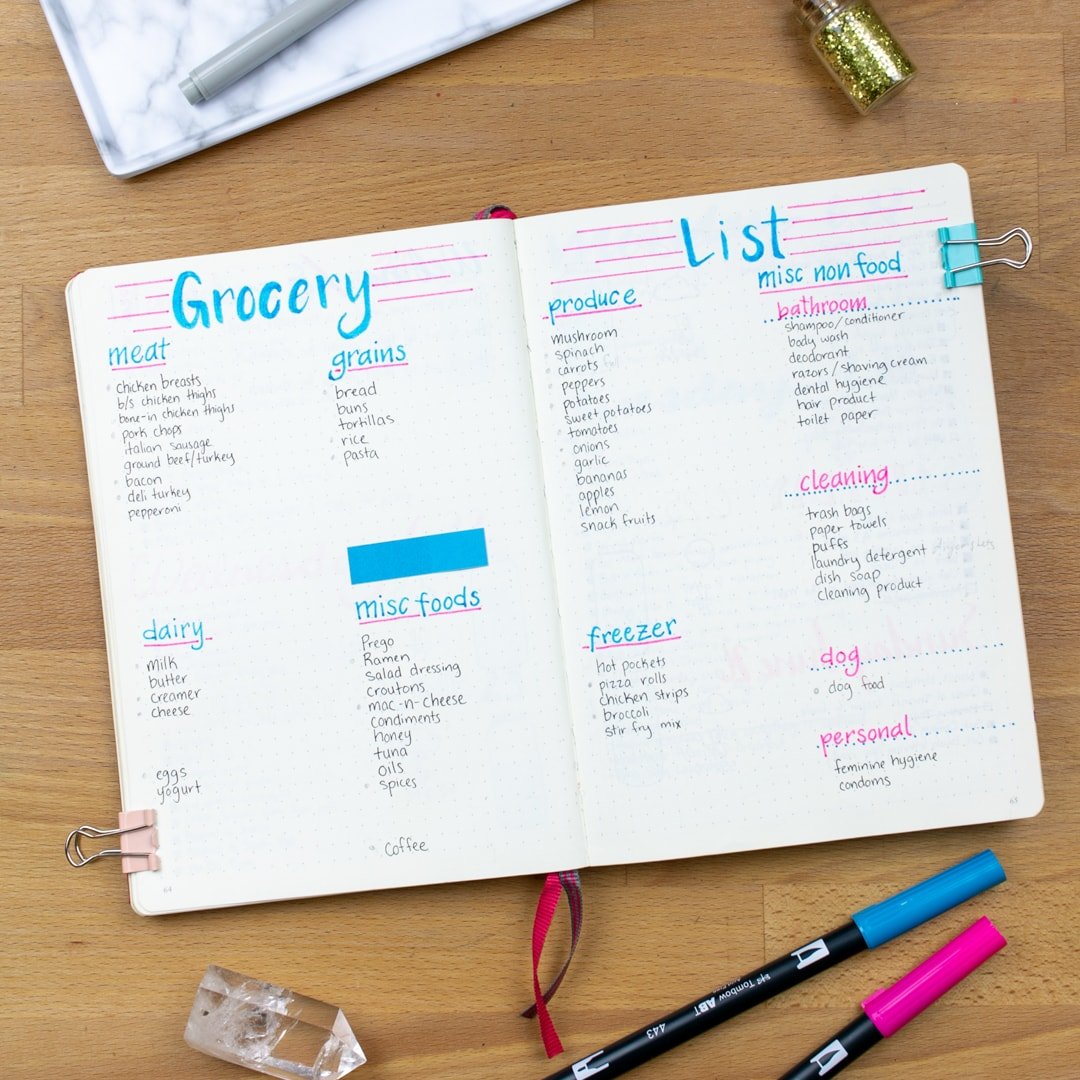 Grocery
meat
chicken breasts
b/s chicken thighs
bone-in chicken thighs
pork chops
italian sausage
ground beef/turkey
bacon
deli turkey
pepperoni
grains
bread
buns
tortillas
rice
pasta
dairy
milk
butter
creamer
cheese
eggs
yogurt
misc foods
Prego
Ramen
Salad dressing
croutons
mac-n-cheese
condiments
honey
tuna
oils
spices
coffee
64
List
produce
mushroom
spinach
carrots
peppers
potatoes
sweet potatoes
tomatoes
onions
garlic
bananas
apples
lemon
snack fruits
freezer
hot pockets
pizza rolls
chicken strips
broccoli
stir fry mix
misc non food
bathroom
shampoo/conditioner
body wash
deodorant
razors/shaving cream
dental hygiene
hair product
toilet paper
cleaning
trash bags
paper towels
puffs
laundry detergent
dish soap
cleaning product
dog
dog food
personal
feminine hygiene
condoms
65
Tombow ABT
443